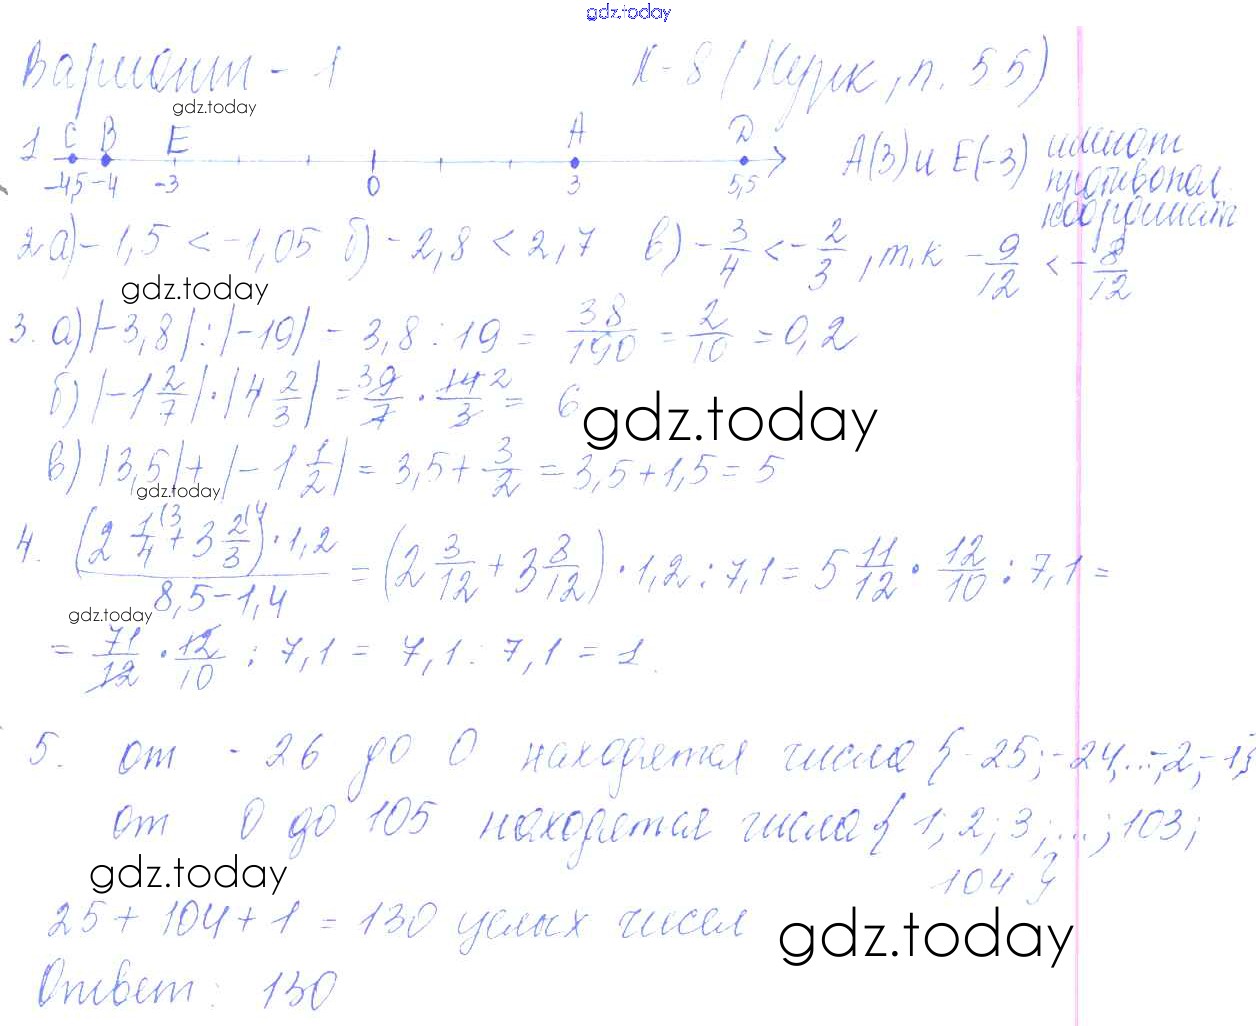 gdz.today
Вариант - 1 К-8 (Нурк, п. 55)
gdz.today
C B E A D
1 -4,5 -4 -3 0 3 5,5 A(3) и E(-3) имеют
противопол.
координат
2 а) -1,5 < -1,05 б) -2,8 < 2,7 в) -3/4 < -2/3, т.к -9/12 < -8/12
gdz.today
3. а) |-3,8| : |-19| = 3,8 : 19 = 38/190 = 2/10 = 0,2
б) |-1 2/7| · |4 2/3| = 9/7 · 14/3 = 6
gdz.today
в) |3,5| + |-1 1/2| = 3,5 + 3/2 = 3,5 + 1,5 = 5
gdz.today
4. (2 1/4 + 3 2/3) · 1,2 / 8,5 - 1,4 = (2 3/12 + 3 8/12) · 1,2 : 7,1 = 5 11/12 · 12/10 : 7,1 =
gdz.today
= 71/12 · 12/10 : 7,1 = 7,1 : 7,1 = 1.
5. от -26 до 0 находятся числа {-25; -24,...-2; -1}
от 0 до 105 находятся числа { 1; 2; 3; ...; 103;
104 }
gdz.today
25 + 104 + 1 = 130 целых чисел
gdz.today
Ответ: 130